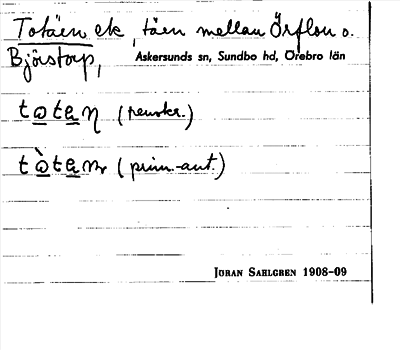 Totäen ek, täen mellan Örflon o.
Björstorp, Askersunds sn, Sundbo hd, Örebro län
(renskr.)
(prim.-aut.)
JÖRAN SAHLGREN 1908-09